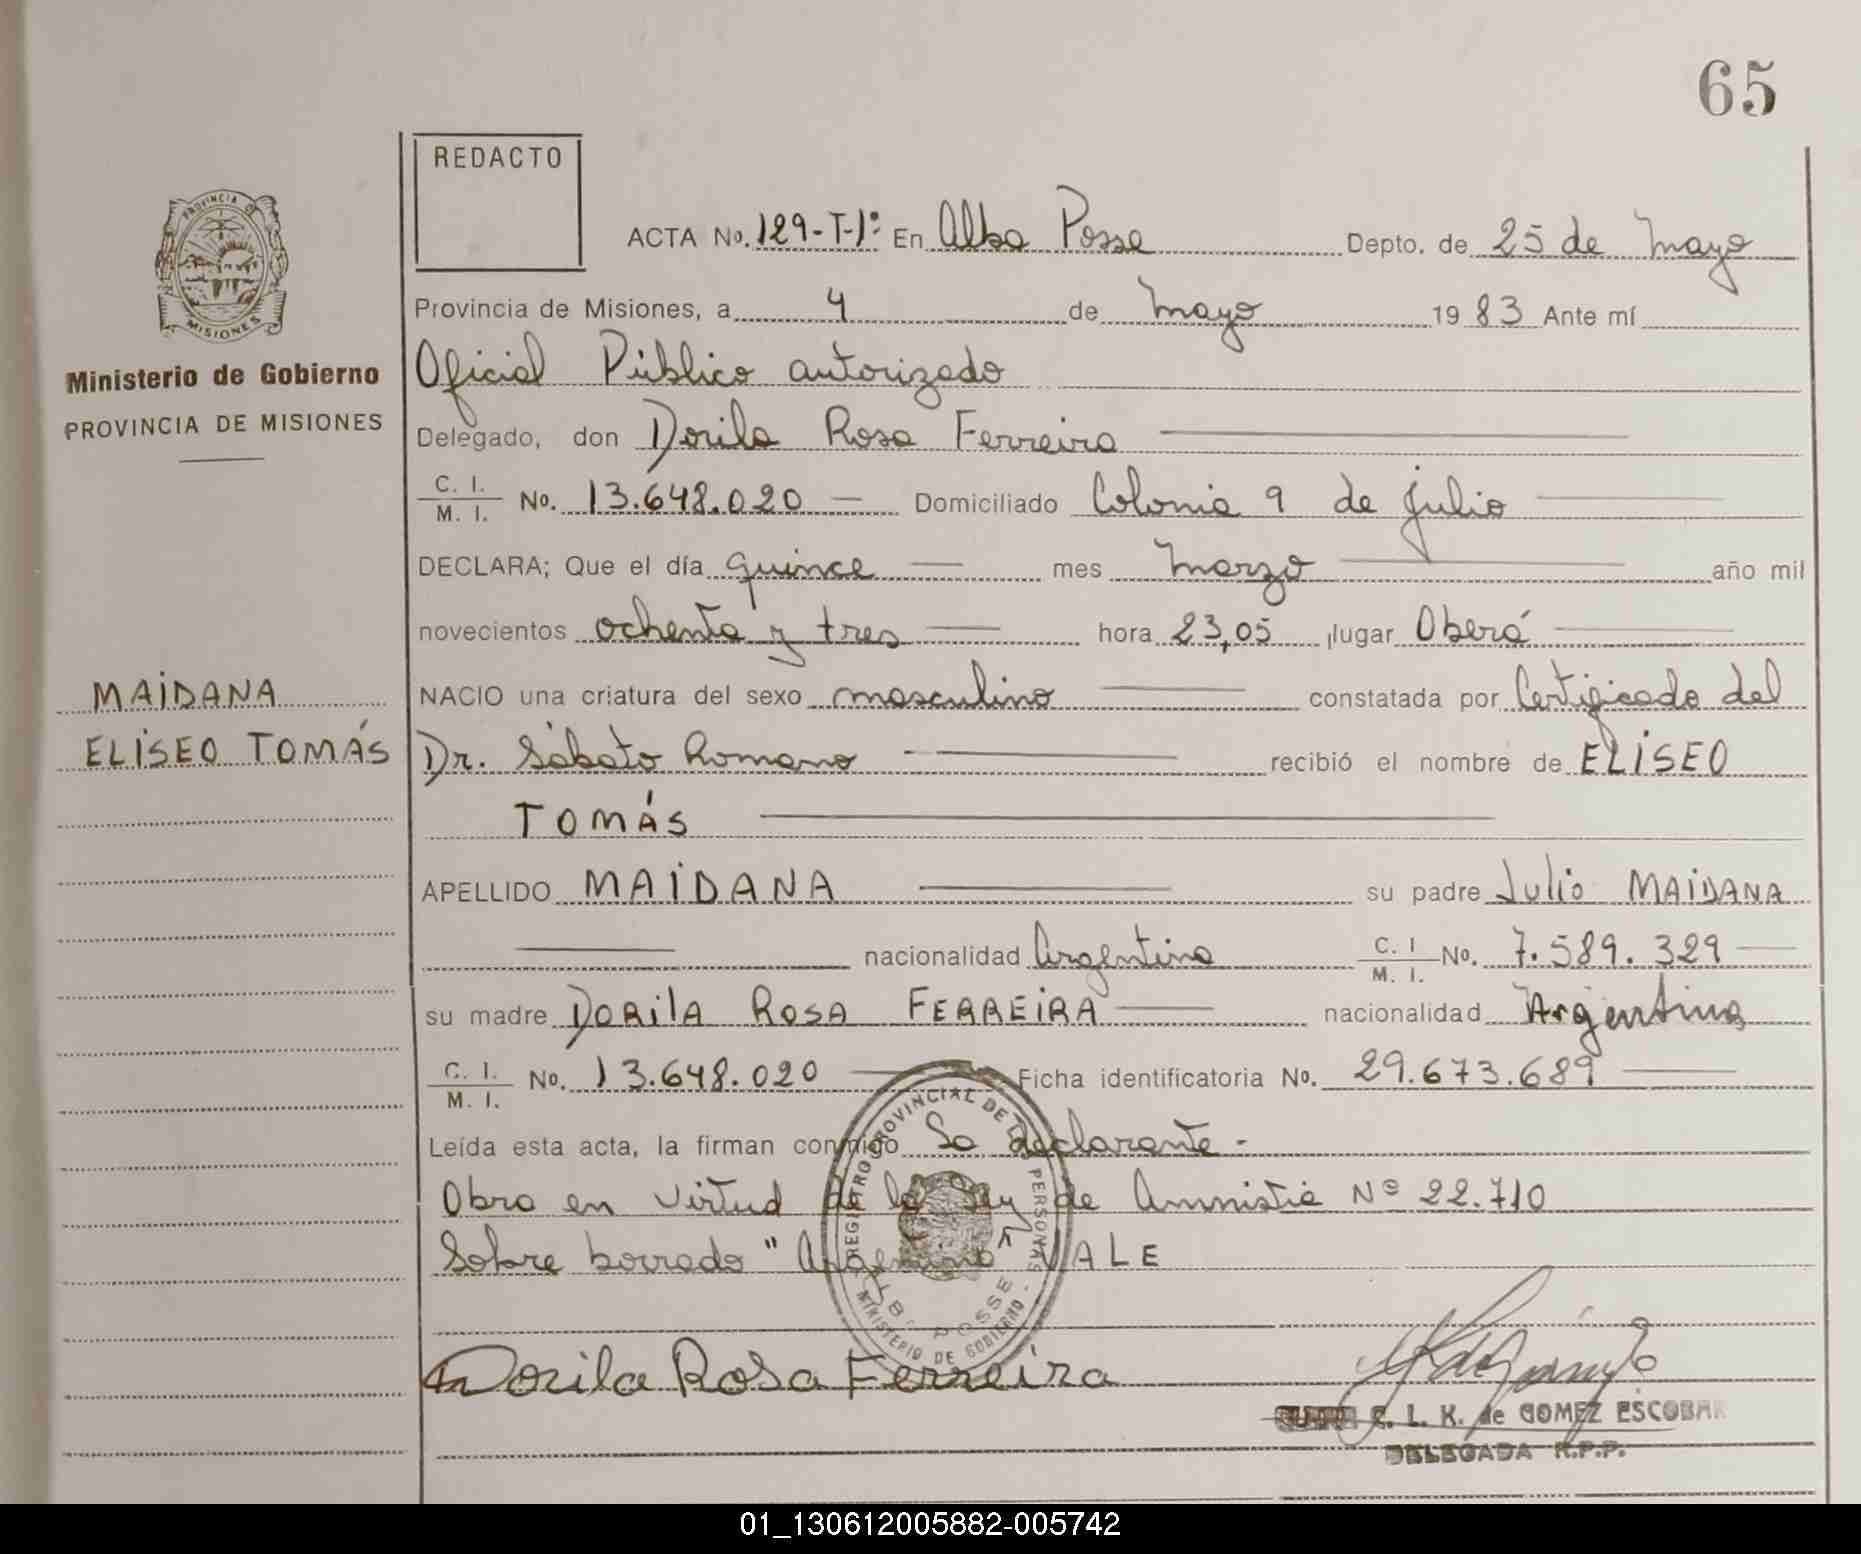 65
REDACTO
PROVINCIA DE
MISIONES
ACTA No. 129-T-1º En Alba Posse Depto. de 25 de Mayo
Provincia de Misiones, a 4 de Mayo 1983 Ante mí
Ministerio de Gobierno
Oficial Público autorizado
PROVINCIA DE MISIONES
Delegado, don Dorila Rosa Ferreira
C. I. / M. I. No. 13.648.020 Domiciliado Colonia 9 de Julio
DECLARA; Que el día quince mes Marzo año mil
novecientos ochenta y tres hora 23,05 lugar Oberá
MAIDANA
NACIO una criatura del sexo masculino constatada por Certificado del
ELISEO TOMÁS
Dr. Sábato Romano recibió el nombre de ELISEO
TOMÁS
APELLIDO MAIDANA su padre Julio MAIDANA
nacionalidad Argentina C. I / M. I. No. 7.589.329
su madre DORILA ROSA FERREIRA nacionalidad Argentina
C. I. / M. I. No. 13.648.020 Ficha identificatoria No. 29.673.689
Leída esta acta, la firman conmigo La declarante -
Obra en virtud de la Ley de Amnistia Nº 22.710
Sobre borrado "Argentina" VALE
REGISTRO PROVINCIAL DE LAS PERSONAS
ALBA POSSE
MINISTERIO DE GOBIERNO
Dorila Rosa Ferreira
C. L. K. de GOMEZ ESCOBAR
DELEGADA R.P.P.
01_130612005882-005742